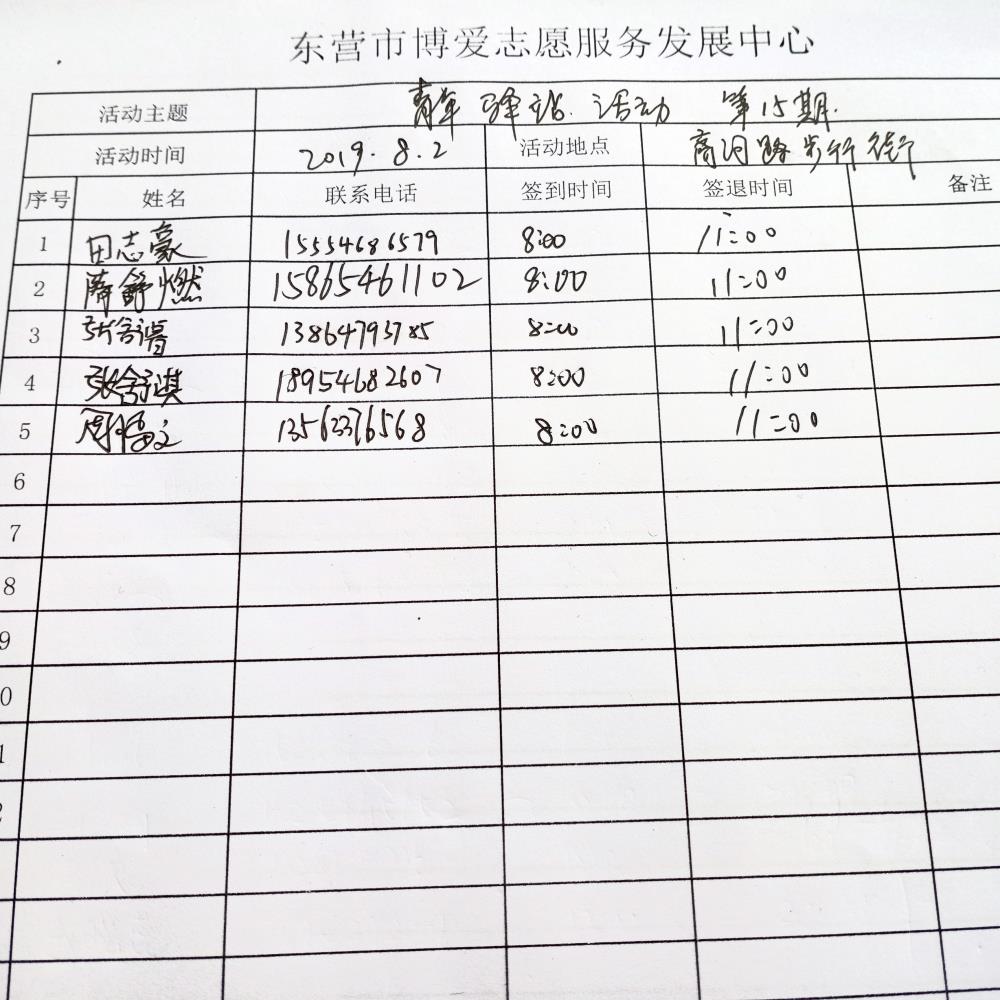 东营市博爱志愿服务发展中心
活动主题 青年驿站活动 第15期.
活动时间 2019.8.2 活动地点 商河路步行街
序号 姓名 联系电话 签到时间 签退时间 备注
1 田志豪 15554686579 8:00 11:00
2 薛舒燃 15865461102 8:00 11:00
3 13864793785 8:00 11:00
4 张舒淇 18954682607 8:00 11:00
5 13562376568 8:00 11:00
6
7
8
9
0
1
2